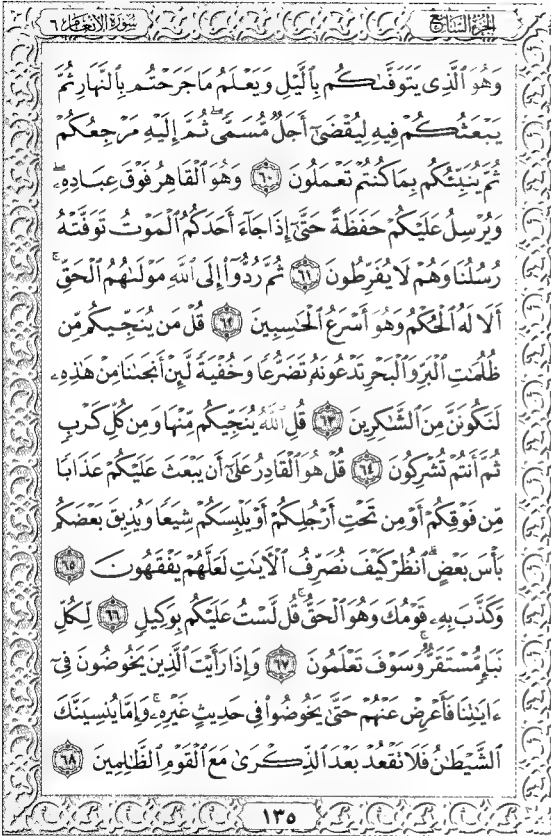 الجزء السابع
سورة الأنعام ٦
وَهُوَ ٱلَّذِى يَتَوَفَّىٰكُم بِٱلَّيْلِ وَيَعْلَمُ مَا جَرَحْتُم بِٱلنَّهَارِ ثُمَّ
يَبْعَثُكُمْ فِيهِ لِيُقْضَىٰٓ أَجَلٌ مُّسَمًّى ۖ ثُمَّ إِلَيْهِ مَرْجِعُكُمْ
ثُمَّ يُنَبِّئُكُم بِمَا كُنتُمْ تَعْمَلُونَ ٦٠ وَهُوَ ٱلْقَاهِرُ فَوْقَ عِبَادِهِۦ ۖ
وَيُرْسِلُ عَلَيْكُمْ حَفَظَةً حَتَّىٰٓ إِذَا جَآءَ أَحَدَكُمُ ٱلْمَوْتُ تَوَفَّتْهُ
رُسُلُنَا وَهُمْ لَا يُفَرِّطُونَ ٦١ ثُمَّ رُدُّوٓا۟ إِلَى ٱللَّهِ مَوْلَىٰهُمُ ٱلْحَقِّ ۚ
أَلَا لَهُ ٱلْحُكْمُ وَهُوَ أَسْرَعُ ٱلْحَٰسِبِينَ ٦٢ قُلْ مَن يُنَجِّيكُم مِّن
ظُلُمَٰتِ ٱلْبَرِّ وَٱلْبَحْرِ تَدْعُونَهُۥ تَضَرُّعًا وَخُفْيَةً لَّئِنْ أَنجَىٰنَا مِنْ هَٰذِهِۦ
لَنَكُونَنَّ مِنَ ٱلشَّٰكِرِينَ ٦٣ قُلِ ٱللَّهُ يُنَجِّيكُم مِّنْهَا وَمِن كُلِّ كَرْبٍ
ثُمَّ أَنتُمْ تُشْرِكُونَ ٦٤ قُلْ هُوَ ٱلْقَادِرُ عَلَىٰٓ أَن يَبْعَثَ عَلَيْكُمْ عَذَابًا
مِّن فَوْقِكُمْ أَوْ مِن تَحْتِ أَرْجُلِكُمْ أَوْ يَلْبِسَكُمْ شِيَعًا وَيُذِيقَ بَعْضَكُم
بَأْسَ بَعْضٍ ۗ ٱنظُرْ كَيْفَ نُصَرِّفُ ٱلْءَايَٰتِ لَعَلَّهُمْ يَفْقَهُونَ ٦٥
وَكَذَّبَ بِهِۦ قَوْمُكَ وَهُوَ ٱلْحَقُّ ۚ قُل لَّسْتُ عَلَيْكُم بِوَكِيلٍ ٦٦ لِّكُلِّ
نَبَإٍ مُّسْتَقَرٌّ ۚ وَسَوْفَ تَعْلَمُونَ ٦٧ وَإِذَا رَأَيْتَ ٱلَّذِينَ يَخُوضُونَ فِىٓ
ءَايَٰتِنَا فَأَعْرِضْ عَنْهُمْ حَتَّىٰ يَخُوضُوا۟ فِى حَدِيثٍ غَيْرِهِۦ ۚ وَإِمَّا يُنسِيَنَّكَ
ٱلشَّيْطَٰنُ فَلَا تَقْعُدْ بَعْدَ ٱلذِّكْرَىٰ مَعَ ٱلْقَوْمِ ٱلظَّٰلِمِينَ ٦٨
١٣٥